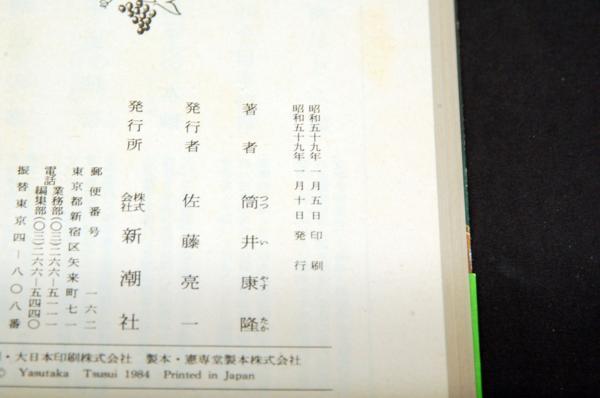 昭和五十九年一月五日印刷
昭和五十九年一月十日発行
著者 筒井康隆
つつ い やす たか
発行者 佐藤亮一
発行所 株式会社 新潮社
郵便番号 一六二
東京都新宿区矢来町七一
電話 業務部(〇三)二六六―五一一一
編集部(〇三)二六六―五四四〇
振替東京四―八〇八番
・大日本印刷株式会社 製本・憲専堂製本株式会社
© Yasutaka Tsutsui 1984 Printed in Japan